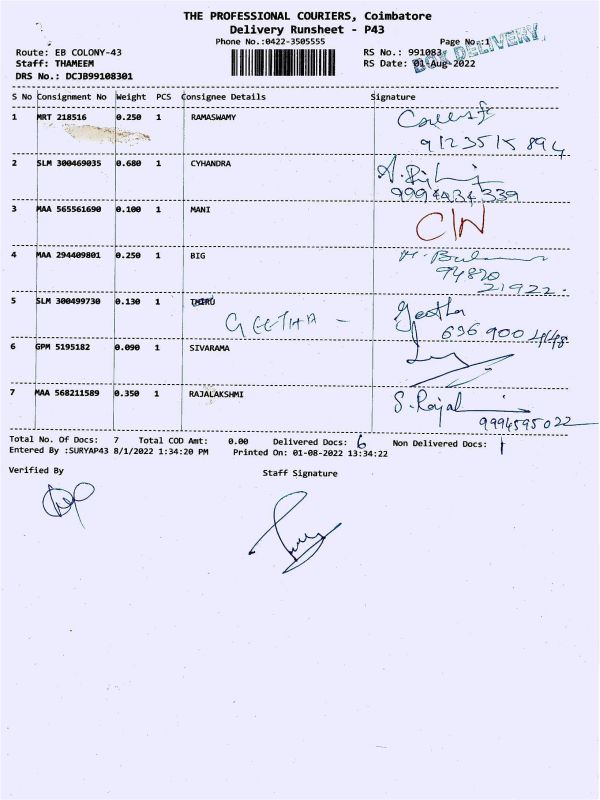 THE PROFESSIONAL COURIERS, Coimbatore
Delivery Runsheet - P43
Phone No.:0422-3505555
Page No.:1
BOY DELIVERY
Route: EB COLONY-43
RS No.: 991083
Staff: THAMEEM
RS Date: 01-Aug-2022
DRS No.: DCJB99108301
S No Consignment No Weight PCS Consignee Details Signature
1 MRT 218516 0.250 1 RAMASWAMY
9123515894
2 SLM 300469035 0.680 1 CYHANDRA
9994434339
3 MAA 565561690 0.100 1 MANI C/N
4 MAA 294409801 0.250 1 BIG
94870
21922.
5 SLM 300499730 0.130 1 THIRU Geetha
GEETHA -
636900
6 GPM 5195182 0.090 1 SIVARAMA
7 MAA 568211589 0.350 1 RAJALAKSHMI S. Rajal
9994595022
Total No. Of Docs: 7 Total COD Amt: 0.00 Delivered Docs: 6 Non Delivered Docs: 1
Entered By :SURYAP43 8/1/2022 1:34:20 PM Printed On: 01-08-2022 13:34:22
Verified By
Staff Signature